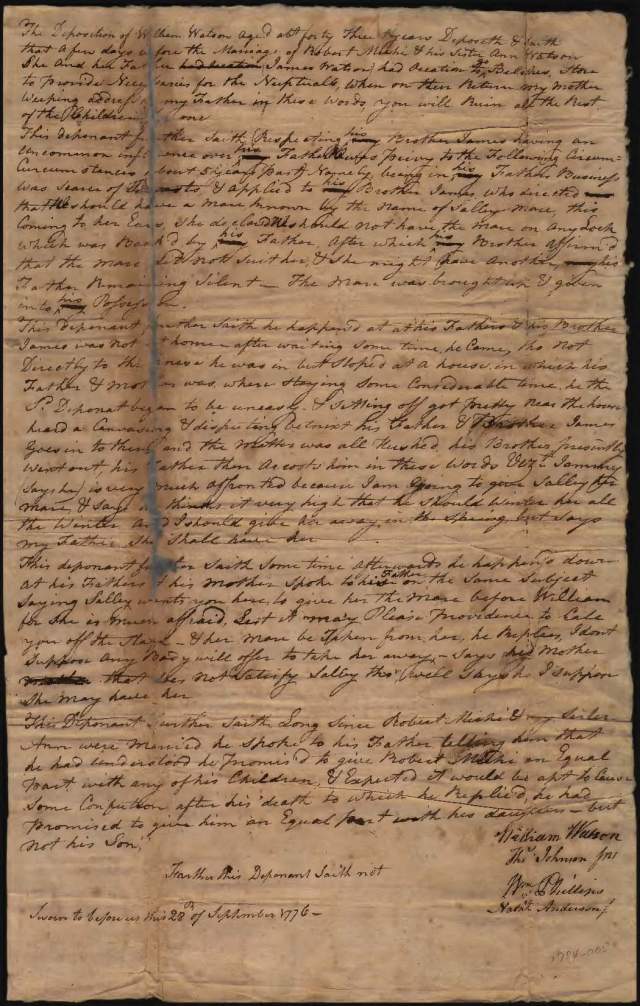 The Deposition of William Watson aged abt forty three years Deposeth & saith
that a few days before the Marriage of Robert Michi & his Sister Ann Watson
She and her Father had occation James Watson had Ocation to Belches, Store
to provide Necessaries for the Neuptuals, when on their Return my Mother
Weeping address'd my Father in these Words you will Ruin all the Rest
of the Children one
This deponant further Saith, Respecting his my Brother James having an
uncommon influence over his my Father privy to the Following Circum-
Circumstances about 5 years past, Namely being in his my Father Business
was Scarce of & applied to his my Brother James who directed
that He should have a Mare known by the Name of Salley Mare, this
Coming to her Ears, She declard He should not have the Mare on any
which was Back'd by his my Father, after which his my Brother affirm'd
that the Mare did not suit her, & she might have another, his
Father Remaining Silent - The Mare was brought up & given
into his Possession.
This Deponant further Saith he happened at at his Fathers & his Brother
James was not at home after waiting some time, he Came, tho not
Directly to the house he was in but stoped at a house, in which his
Father & Mother was, where Staying Some Considerable time, he the
Sd. Deponat began to be uneasy & Setting off got pretty near the house
heard a & disputing betwixt his Father & Brother James
Goes in to them and the Mother was all Hushed, his Brother presently
Went out, his Father then Acosts him in these Words
(Says he) is very much affronted because I am Going to give Salley the
mare, & Says he thinks it very high that he should Winter her all
the Winter and I should give her away in the Spring but Says
my Father She Shall have her
This deponant further Saith Some time afterwards he happens down
at his Fathers & his Mother Spoke to his Father on the Same Subject
Saying Salley wants you here, to give her the Mare before William
for She is much affraid, Lest it may Please Providence to Cale
you off the Stage - & her Mare be Taken from her, he Replies, I dont
Suppose any Body will offer to take her away, - Says his Mother
that does not Satisfy Salley tho, well Says he I suppose
She may have her
This Deponant further Saith Long Since Robert Michi & my Sister
Ann were Married he Spoke to his Father telling him that
he had understood he Promis'd to give Robert Michi an Equal
part with any of his Children, & Expected it would be apt to Cause
Some Confution after his death to which he Replied, he had
Promised to give him an Equal part with his daughters - but
not his Son,
William Watson
Farther this Deponant Saith not
Thos. Johnson jnr
Wm
Nathl. Anderson
Sworn to before us this 28th of September 1776 -